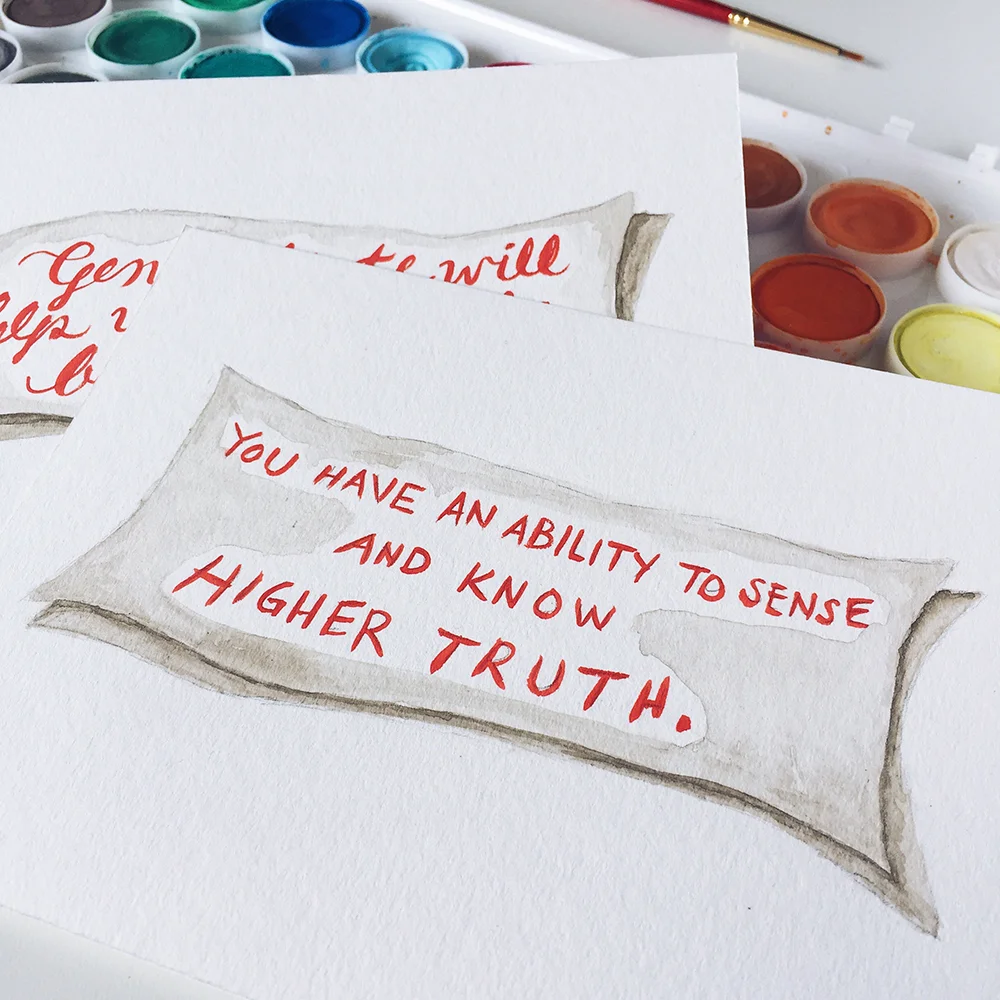 will
YOU HAVE AN ABILITY TO SENSE
AND KNOW
HIGHER TRUTH.